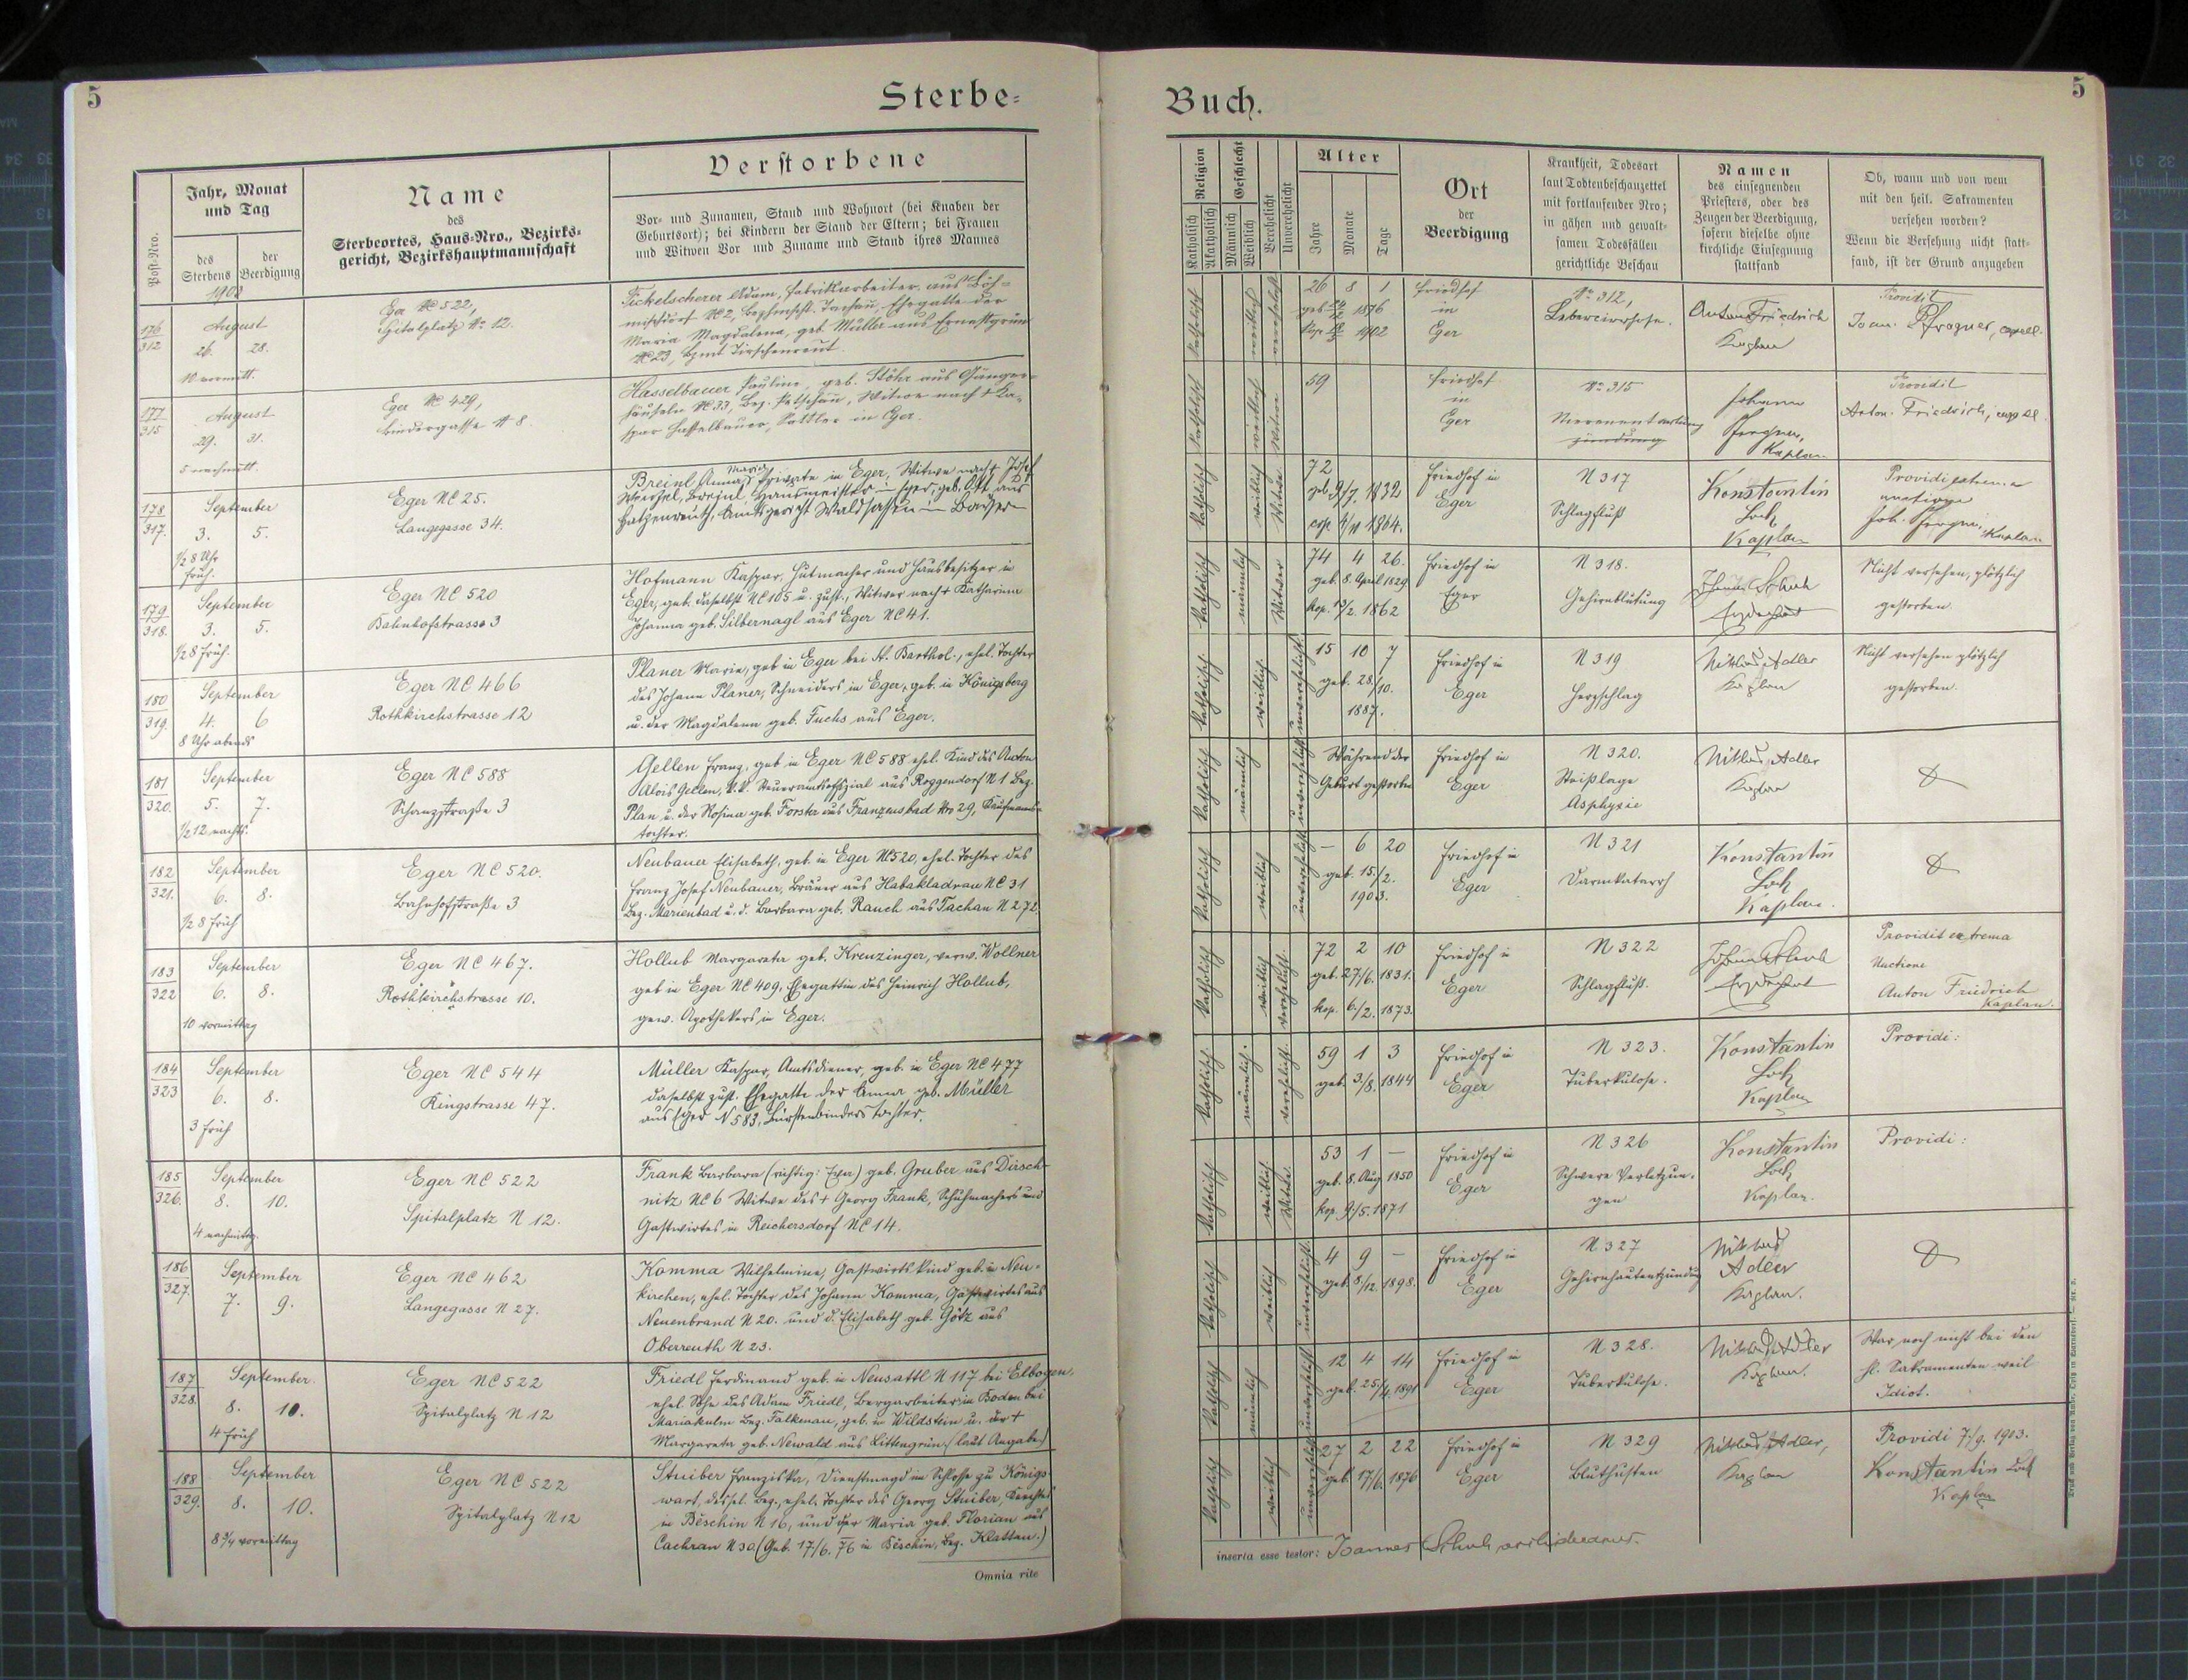 5
Sterbe-
Buch.
5
Post-Nro.
Jahr, Monat
und Tag
des
Sterbens
der
Beerdigung
Name
des
Sterbeortes, Haus-Nro., Bezirks-
gericht, Bezirkshauptmannschaft
Verstorbene
Vor- und Zunamen, Stand und Wohnort (bei Knaben der
Geburtsort); bei Kindern der Stand der Eltern; bei Frauen
und Witwen Vor und Zuname und Stand ihres Mannes
Religion
Katholisch
Akatholisch
Geschlecht
Männlich
Weiblich
Verehelicht
Unverehelicht
Alter
Jahre
Monate
Tage
Ort
der
Beerdigung
Krankheit, Todesart
laut Todtenbeschauzettel
mit fortlaufender Nro;
in gähen und gewalt-
samen Todesfällen
gerichtliche Beschau
Namen
des einsegnenden
Priesters, oder des
Zeugen der Beerdigung,
sofern dieselbe ohne
kirchliche Einsegnung
stattfand
Ob, wann und von wem
mit den heil. Sakramenten
versehen worden?
Wenn die Versehung nicht statt-
fand, ist der Grund anzugeben
1903
176
312
August
26. 28.
10 vormitt.
Eger NC 522,
Spitalplatz No 12.
Fickelscherer Adam, Fabriksarbeiter aus Böh-
mischdorf NC 2, Bezhmschft. Tachau, Ehegatte der
Maria Magdalena, geb. Müller aus Ernestgrün
NC 23, Bzmt Tirschenreut.
katholisch
verehelicht
26 8 1
1876
1902
Friedhof
in
Eger
No 312,
Lebercirrhose.
Anton Friedrich
Kaplan
Providit
Joan. Pfrogner, capell.
177
315
August
29. 31.
5 nachmitt.
Eger NC 429,
Bindergasse N 8.
Hasselbauer Pauline, geb. Stöhr aus Gänger-
häuseln NC 33, Bez. Petschau, Witwe nach † Ka-
spar Hasselbauer, Sattler in Eger.
katholisch
weiblich
Witwe
59
Friedhof
in
Eger
No 315
Johann
Pfrogner,
Kaplan
Providit
Anton Friedrich, capell.
178
317.
September
3. 5.
1/2 8 Uhr
früh.
Eger NC 25.
Langegasse 34.
Maria
Breinl Anna, Private in Eger, Witwe nach † Josef
Breinl, Hausmeister in Eger, geb. Ott aus
Hatzenreuth, Amtsgericht Waldsassen in Bayern
katholisch
weiblich
Witwe
72
geb. 9/7. 1832
cop. 4/11 1864.
Friedhof in
Eger
N 317
Schlagfluß
Konstantin
Lock
Kaplan
Providi extrema
unctione
Joh. Pfrogner, Kaplan
179
318.
September
3. 5.
1/2 8 früh.
Eger NC 520
Bahnhofstrasse 3
Hofmann Kaspar, Hutmacher und Hausbesitzer in
Eger, geb. daselbst NC 105 u. zust., Witwer nach † Katharina
Johanna geb. Silbernagl aus Eger NC 41.
katholisch
männlich
Witwer
74 4 26.
geb. 8. April 1829
kop. 13/2. 1862
Friedhof in
Eger
N 318.
Gehirnblutung
Johann Schuh
Erzdechant
Nicht versehen, plötzlich
gestorben.
180
319.
September
4. 6
8 Uhr abends
Eger NC 466
Rothkirchstrasse 12
Planer Marie, geb in Eger bei St. Barthol., ehel. Tochter
des Johann Planer, Schneiders in Eger, geb. in Königsberg
u. der Magdalena geb. Fuchs aus Eger.
katholisch
weiblich
unverehelicht.
15 10 7
geb. 28/10.
1887.
Friedhof in
Eger
N 319
Herzschlag
Niklas Adler
Kaplan
Nicht versehen plötzlich
gestorben.
181
320.
September
5. 7.
1/2 12 nachts.
Eger NC 588
Schanzstraße 3
Gellen Franz, geb in Eger NC 588 ehel. Kind des Anton
Alois Gellen, k.k. Steueramtsoffizial aus Roggendorf N 1 Bez.
Plan u. der Rosina geb. Forster aus Franzensbad Nro 29, Kaufmanns-
tochter.
katholisch
männlich
unverehelicht
Während der
Geburt gestorben
Friedhof in
Eger
N 320.
Steißlage
Asphyxie
Niklas Adler
Kaplan
182
321.
September
6. 8.
1/2 8 früh
Eger NC 520.
Bahnhofstraße 3
Neubauer Elisabeth, geb. in Eger NC 520, ehel. Tochter des
Franz Josef Neubauer, Bräuer aus Habakladrau NC 31
Bez. Marienbad u. d. Barbara geb. Rauch aus Tachau N 272.
katholisch
weiblich
unverehelicht
– 6 20
geb. 15./2.
1903.
Friedhof in
Eger
N 321
Darmkatarrh
Konstantin
Lock
Kaplan.
183
322
September
6. 8.
10 vormittag
Eger NC 467.
Rothkirchstrasse 10.
Hollub Margareta geb. Kreuzinger, verw. Wollner
geb in Eger NC 409, Ehegattin des Heinrich Hollub,
gew. Apothekers in Eger.
katholisch
weiblich
verehelicht.
72 2 10
geb. 27/6. 1831.
kop. 6./2. 1873.
Friedhof in
Eger
N 322
Schlagfluß.
Johann Schuh
Erzdechant
Providit extrema
Unctione
Anton Friedrich
Kaplan.
184
323
September
6. 8.
3 früh
Eger NC 544
Ringstrasse 47.
Müller Kaspar, Amtsdiener, geb. in Eger NC 477
daselbst zust. Ehegatte der Anna geb. Müller
aus Eger N 583, Bürstenbinders tochter.
katholisch.
männlich.
verehelicht.
59 1 3
geb. 3/8. 1844
Friedhof in
Eger
N 323.
Tuberkulose.
Konstantin
Lock
Kaplan
Providi:
185
326.
September
8. 10.
4 nachmittg.
Eger NC 522
Spitalplatz N 12.
Frank Barbara (richtig: Eva) geb. Gruber aus Dirsch-
nitz NC 6 Witwe des † Georg Frank, Schuhmachers und
Gastwirtes in Reichersdorf NC 14.
katholisch
weiblich
Witwe.
53 1 –
geb. 8. Aug 1850
kop. 9./5. 1871
Friedhof in
Eger
N 326
Schwere Verletzun-
gen
Konstantin
Lock
Kaplan.
Providi:
186
327.
September
7. 9.
Eger NC 462
Langegasse N 27.
Komma Wilhelmine, Gastwirts kind geb. in Neu-
kirchen, ehel. Tochter des Johann Komma, Gastwirtes aus
Neuenbrand N 20. und d. Elisabeth geb. Götz aus
Oberreuth N 23.
katholisch
weiblich
unverehelicht.
4 9 –
geb. 8/12. 1898.
Friedhof in
Eger
N 327
Gehirnhautentzündung
Niklas
Adler
Kaplan.
187
328.
September.
8. 10.
4 früh
Eger NC 522
Spitalplatz N 12
Friedl Ferdinand geb. in Neusattl N 117 bei Elbogen,
ehel. Sohn des Adam Friedl, Bergarbeiter in Boden bei
Mariakulm Bez. Falkenau, geb. in Wildstein u. der †
Margareta geb. Newald aus Littengrün (laut Angabe)
katholisch
männlich
unverehelicht
12 4 14
geb. 25/4. 1891
Friedhof in
Eger
N 328.
Tuberkulose.
Niklas Adler
Kaplan.
War noch nicht bei den
hl. Sakramenten weil
Idiot.
188
329.
September
8. 10.
8 3/4 vormittag
Eger NC 522
Spitalplatz N 12
Stuiber Franziska, Dienstmagd im Schlosse zu Königs-
wart, dessel. Bez., ehel. Tochter des Georg Stuiber,
in Běschin N 16, und der Maria geb. Florian aus
Cachrau N 30. (Geb. 17/6. 76 in Běschin, Bez. Klattau.)
katholisch
weiblich
unverehelicht
27 2 22
geb. 17/6. 1876
Friedhof in
Eger
N 329
Bluthusten
Niklas Adler,
Kaplan
Providi 7./9. 1903.
Konstantin Lock
Kaplan
Omnia rite
inserta esse testor: Joannes Schuh archidecanus.